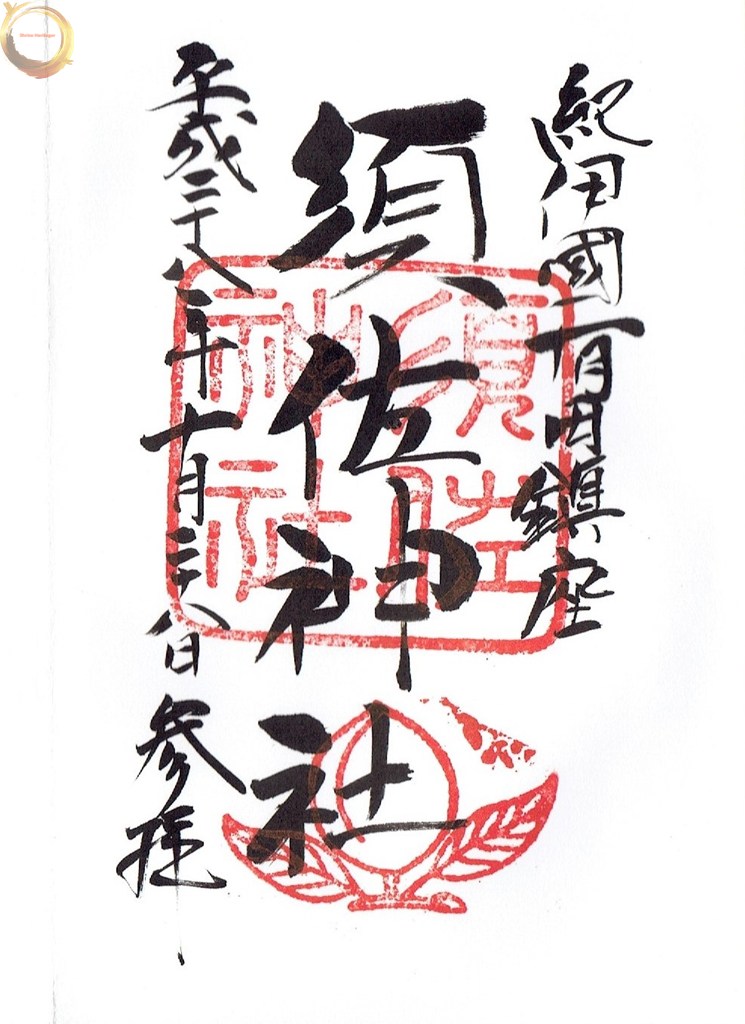 紀伊國有田鎮座
須佐神社
平成二十八年十月二十八日参拝
須佐神社
Shrine Heritager